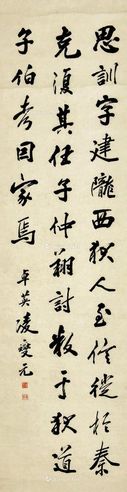 思訓字建隴西狄人至信從於秦
克復其任子仲翔討叛于狄道
子伯考因家焉
卓英凌燮元